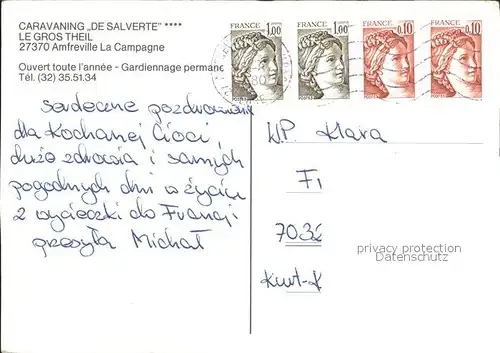 CARAVANING „DE SALVERTE" ****
LE GROS THEIL
27370 Amfreville La Campagne
Ouvert toute l'année - Gardiennage permane
Tél. (32) 35.51.34
FRANCE 1,00
FRANCE 1,00
FRANCE 0,10
FRANCE 0,10
80
Serdeczne pozdrowienia
dla Kochanej Cioci,
dużo zdrowia i samych
pogodnych dni w życiu
z wycieczki do Francji
przesyła Michał
WP. Klara
F
7032
Kurt-
privacy protection
Datenschutz